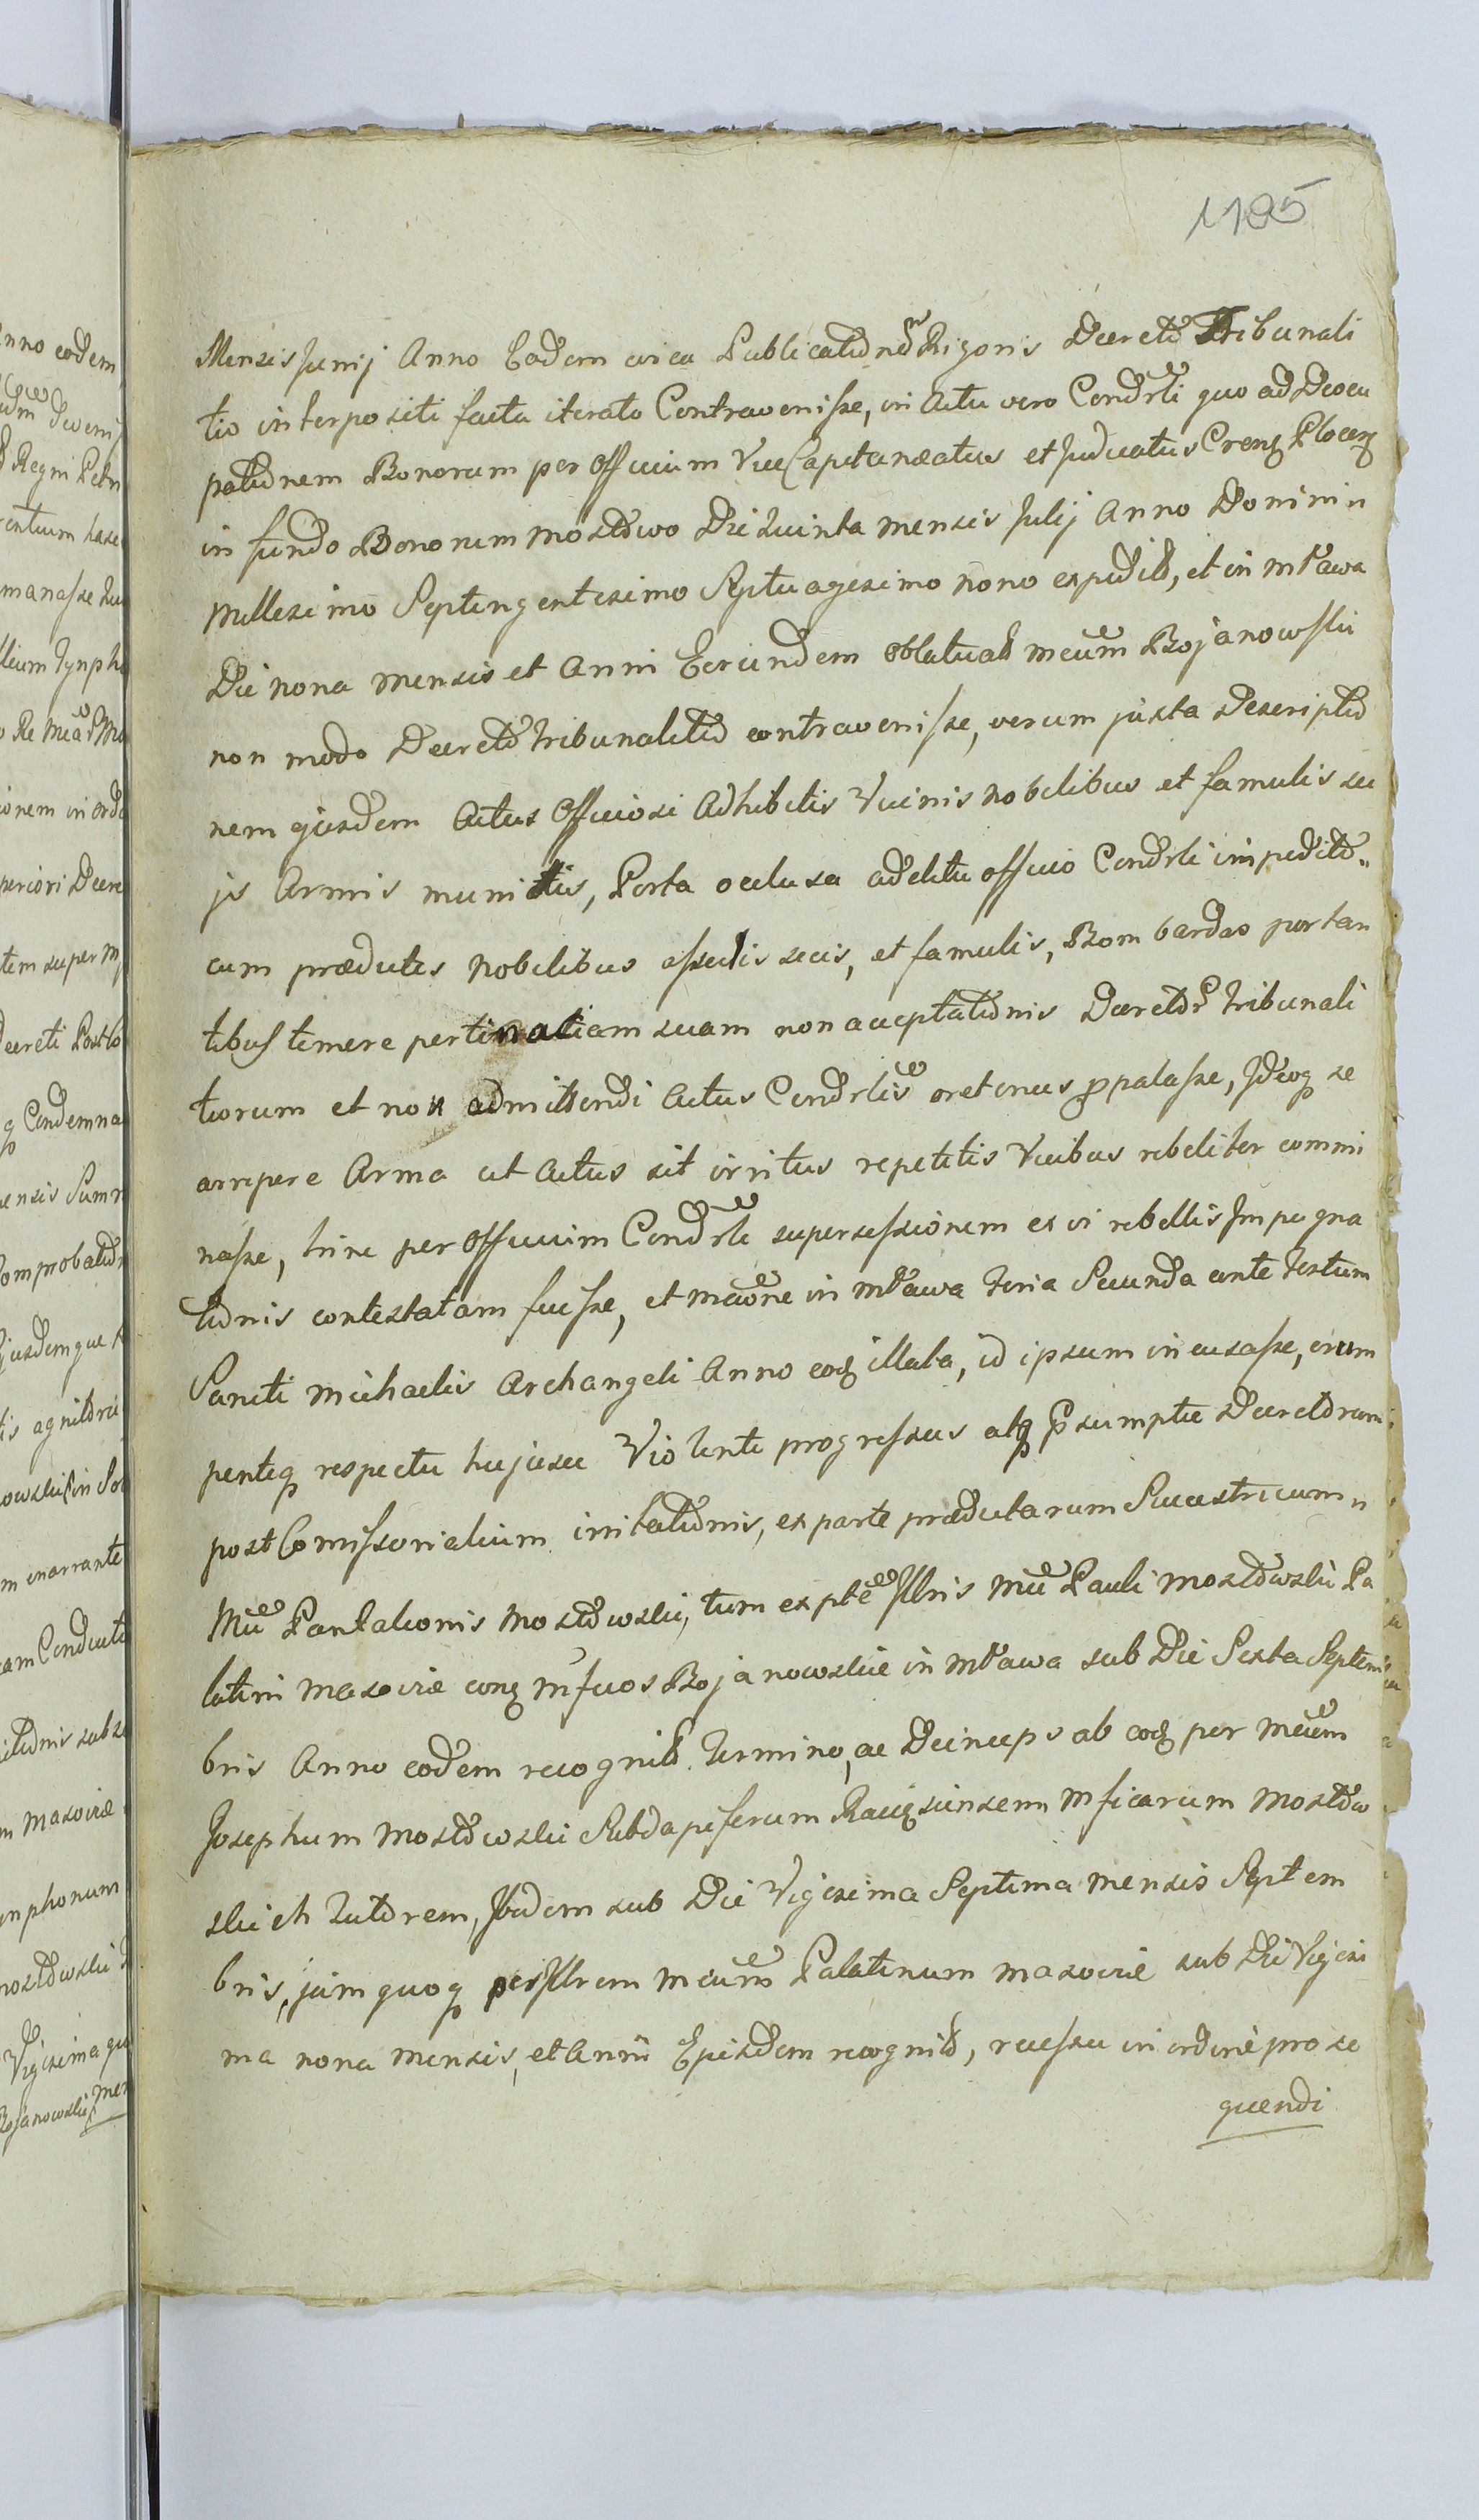 1195
Mensis Junij Anno Eodem circa Publicatõnem Rigoris Decretõ Tribunali
tio interpositi facta iterato Contravenisse, in Actu vero Condrli quo ad Deocu
patõnem Bonorum per Officium ViceCapitanæatus et Judicatus Crenȝ Plocenȝ
in fundo Bonorum Mostõwo Die Quinta mensis Julij Anno Domini
Millesimo Septingentesimo Septuagesimo nono expedit, et in Mława
Die nona Mensis et Anni Eorundem oblatuat Mcum Bojanowski
non modo Decretõ tribunalitiõ contravenisse, verum juxta Descriptiõ
nem ejusdem Actus Officiosi Adhibitis Vicinis Nobilibus et famulis su
is Armis munitis, Porta oclusa aditu officio Condrli impeditõ
cum prædictis Nobilibus asseclis suis, et famulis, Bombardas portan
tibus temere pertinatiam suam non acceptatiõnis Decretõr tribunali
tiorum et non admittendi Actus Condrlis oretenus ppalasse, Ideoq se
arripere Arma ut Actus sit irritus repetitis Vicibus rebeliter commi
nasse, hinc per Officium Condrle supersessionem ex vi rebellis Impugna
tiõnis contestatam fuisse, et maõne in Mława teria Secunda ante festum
Sancti Michaelis Archangeli Anno eoq illata, id ipsum incusasse, erum
penteq respectu hujusce Violenti progressus atq psumptæ Decretõrum
post Comissorialium irritatiõnis, ex parte prædictarum Succestricum
Mci Pantalionis Mostõwski, tum ex pte Illris Mci Pauli Mostõwski Pa
latini Masoviæ conq Mficos Bojanowskie in Mława sub Die Sexta Septem
bris Anno eodem recognit termino, ac Deinceps ab eoq per Mcum
Josephum Mostõwski Subdapiferum Raciqzinsem Mficarum Mostõw
skich Tutõrem, Ibidem sub Die Vigesima Septima Mensis Septem
bris, jam quoq per Illrem Mcum Palatinum Masoviæ sub Die Vigesi
ma nona Mensis, et Anni Ejusdem recognit, recessu in ordine prose
quendi